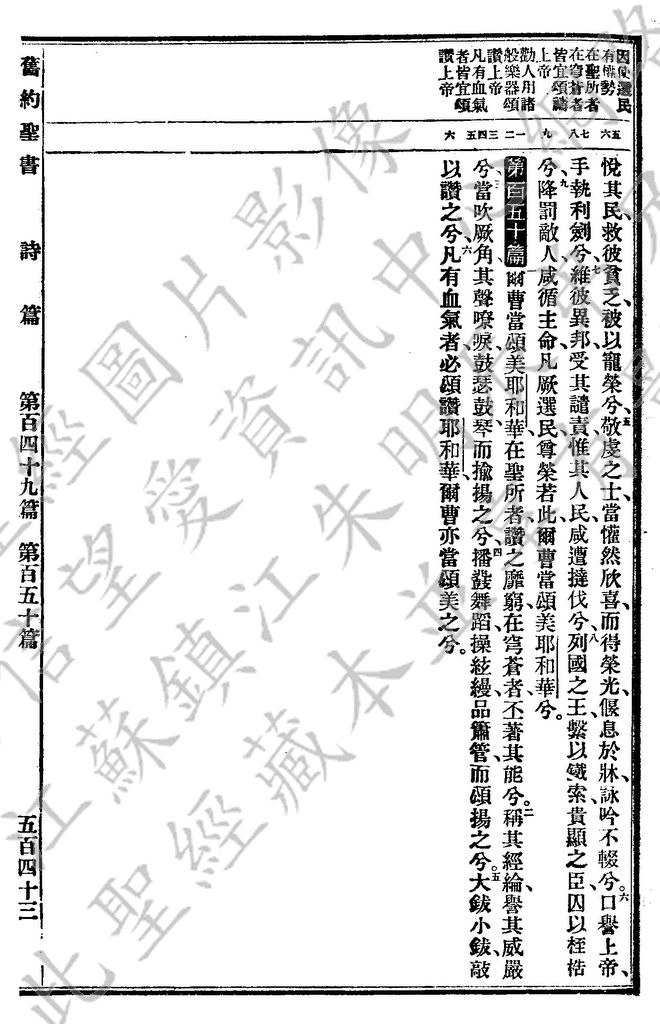 因使選民
有權勢
在聖所者
在穹蒼者
皆宜頌讚
上帝
勸人用諸
般樂器頌
讚上帝
凡有血氣
者皆宜頌
讚上帝
五
六
七
八
九
一
二
三
四
五
六
悅其民、救彼貧乏、被以寵榮兮、五敬虔之士、當懽然欣喜、而得榮光、偃息於牀、詠吟不輟兮。六口譽上帝、
手執利劍兮、七維彼異邦、受其譴責、惟其人民、咸遭撻伐兮、八列國之王、繫以鐵索、貴顯之臣、囚以桎梏
兮、九降罰敵人、咸循主命、凡厥選民、尊榮若此、爾曹當頌美耶和華兮。
第百五十篇 一爾曹當頌美耶和華、在聖所者、讚之靡窮、在穹蒼者、丕著其能兮。二稱其經綸、譽其威嚴
兮、三當吹厥角、其聲嘹喨、鼓瑟鼓琴、而揄揚之兮、四播鼗舞蹈、操絃縵、品簫管、而頌揚之兮。五大鈸小鈸、敲
以讚之兮、六凡有血氣者、必頌讚耶和華、爾曹亦當頌美之兮。
舊約聖書 詩篇 第百四十九篇 第百五十篇 五百四十三